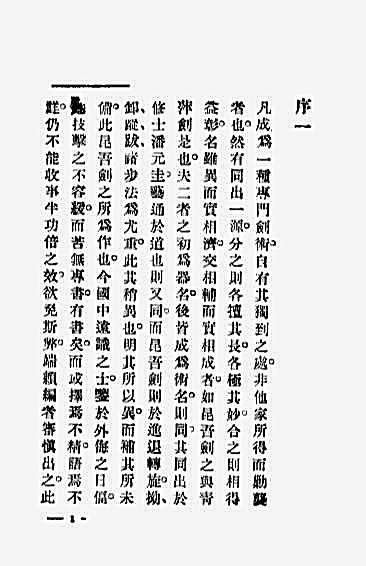 序一
凡成爲一種專門劍術。自有其獨到之處。非他家所得而勦襲
者也。然有同出一源。分之則各擅其長。各極其妙。合之則相得
益彰。名雖異而實相濟。交相輔而實相成者。如昆吾劍之與青
萍劍是也。夫二者之初爲器名。後皆成爲術名。則同。其同出於
修士潘元圭。藝通於道也則又同。而昆吾劍則於進退轉旋。拗、
卸、蹤、跋、諸步法爲尤重。此其稍異也。明其所以異。而補其所未
備。此昆吾劍之所爲作也。今國中遠識之士。鑒於外侮之日偪。
技擊之不容緩。而苦無專書。有書矣。而或擇焉不精。語焉不
詳。仍不能收事半功倍之效。欲免斯弊。端賴編者審慎出之。此
— 1 -